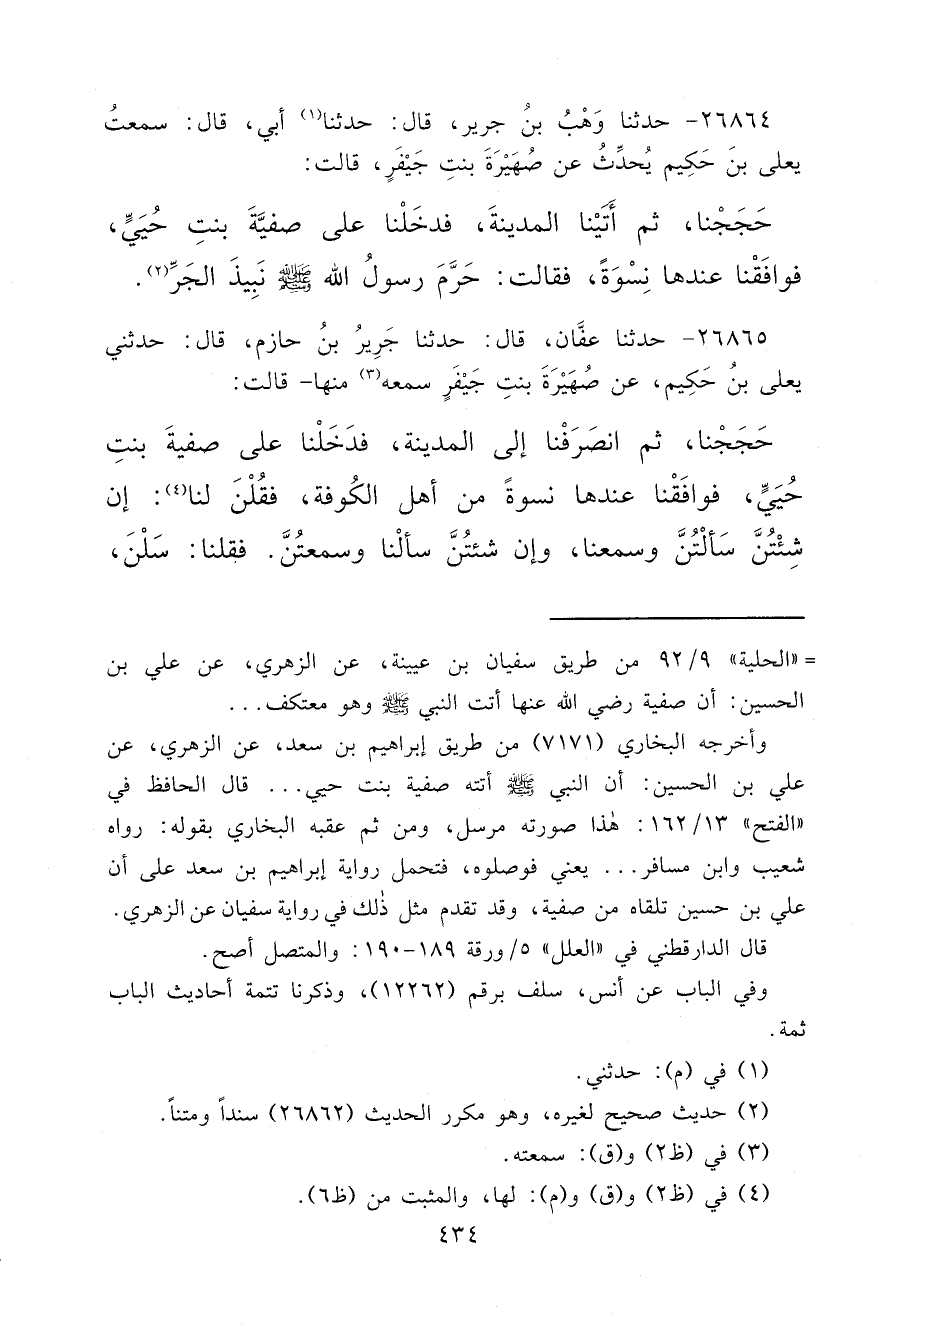 ٢٦٨٦٤- حدثنا وَهْبُ بنُ جرير، قال: حدثنا(١) أبي، قال: سمعتُ
يعلى بنَ حَكيم يُحدِّثُ عن صُهَيْرَةَ بنتِ جَيْفَرٍ، قالت:
حَجَجْنا، ثم أَتَيْنا المدينةَ، فدخَلْنا على صفيَّةَ بنتِ حُيَيٍّ،
فوافَقْنا عندها نِسْوَةً، فقالت: حَرَّمَ رسولُ الله ﷺ نَبِيذَ الجَرِّ(٢).
٢٦٨٦٥- حدثنا عفَّان، قال: حدثنا جَرِيرُ بنُ حازم، قال: حدثني
يعلى بنُ حَكِيم، عن صُهَيْرَةَ بنتِ جَيْفَرٍ سمعه(٣) منها- قالت:
حَجَجْنا، ثم انصَرَفْنا إلى المدينة، فدَخَلْنا على صفيةَ بنتِ
حُيَيٍّ، فوافَقْنا عندها نسوةً من أهل الكُوفة، فقُلْنَ لنا(٤): إن
شِئْتُنَّ سَألْتُنَّ وسمعنا، وإن شئتُنَّ سألْنا وسمعتُنَّ. فقلنا: سَلْنَ،
= «الحلية» ٩٢/٩ من طريق سفيان بن عيينة، عن الزهري، عن علي بن
الحسين: أن صفية رضي الله عنها أتت النبي ﷺ وهو معتكف...
وأخرجه البخاري (٧١٧١) من طريق إبراهيم بن سعد، عن الزهري، عن
علي بن الحسين: أن النبي ﷺ أتته صفية بنت حيي... قال الحافظ في
«الفتح» ١٦٢/١٣: هٰذا صورته مرسل، ومن ثم عقبه البخاري بقوله: رواه
شعيب وابن مسافر... يعني فوصلوه، فتحمل رواية إبراهيم بن سعد على أن
علي بن حسين تلقاه من صفية، وقد تقدم مثل ذٰلك في رواية سفيان عن الزهري.
قال الدارقطني في «العلل» ٥/ ورقة ١٨٩-١٩٠: والمتصل أصح.
وفي الباب عن أنس، سلف برقم (١٢٢٦٢)، وذكرنا تتمة أحاديث الباب
ثمة.
(١) في (م): حدثني.
(٢) حديث صحيح لغيره، وهو مكرر الحديث (٢٦٨٦٢) سنداً ومتناً.
(٣) في (ظ٢) و(ق): سمعته.
(٤) في (ظ٢) و(ق) و(م): لها، والمثبت من (ظ٦).
٤٣٤